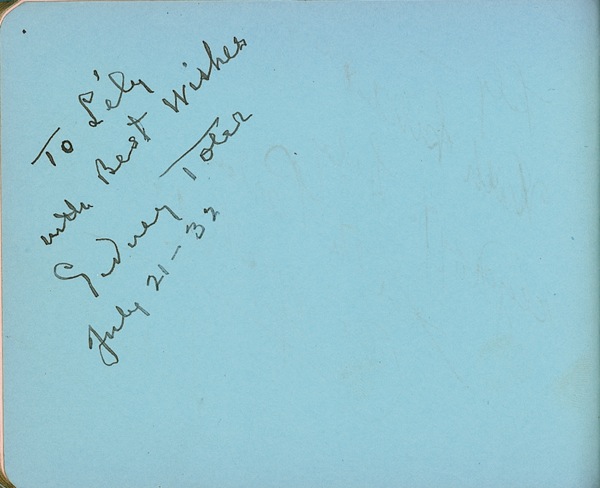 To Lély
with Best Wishes
Sidney Toler
July 21-32